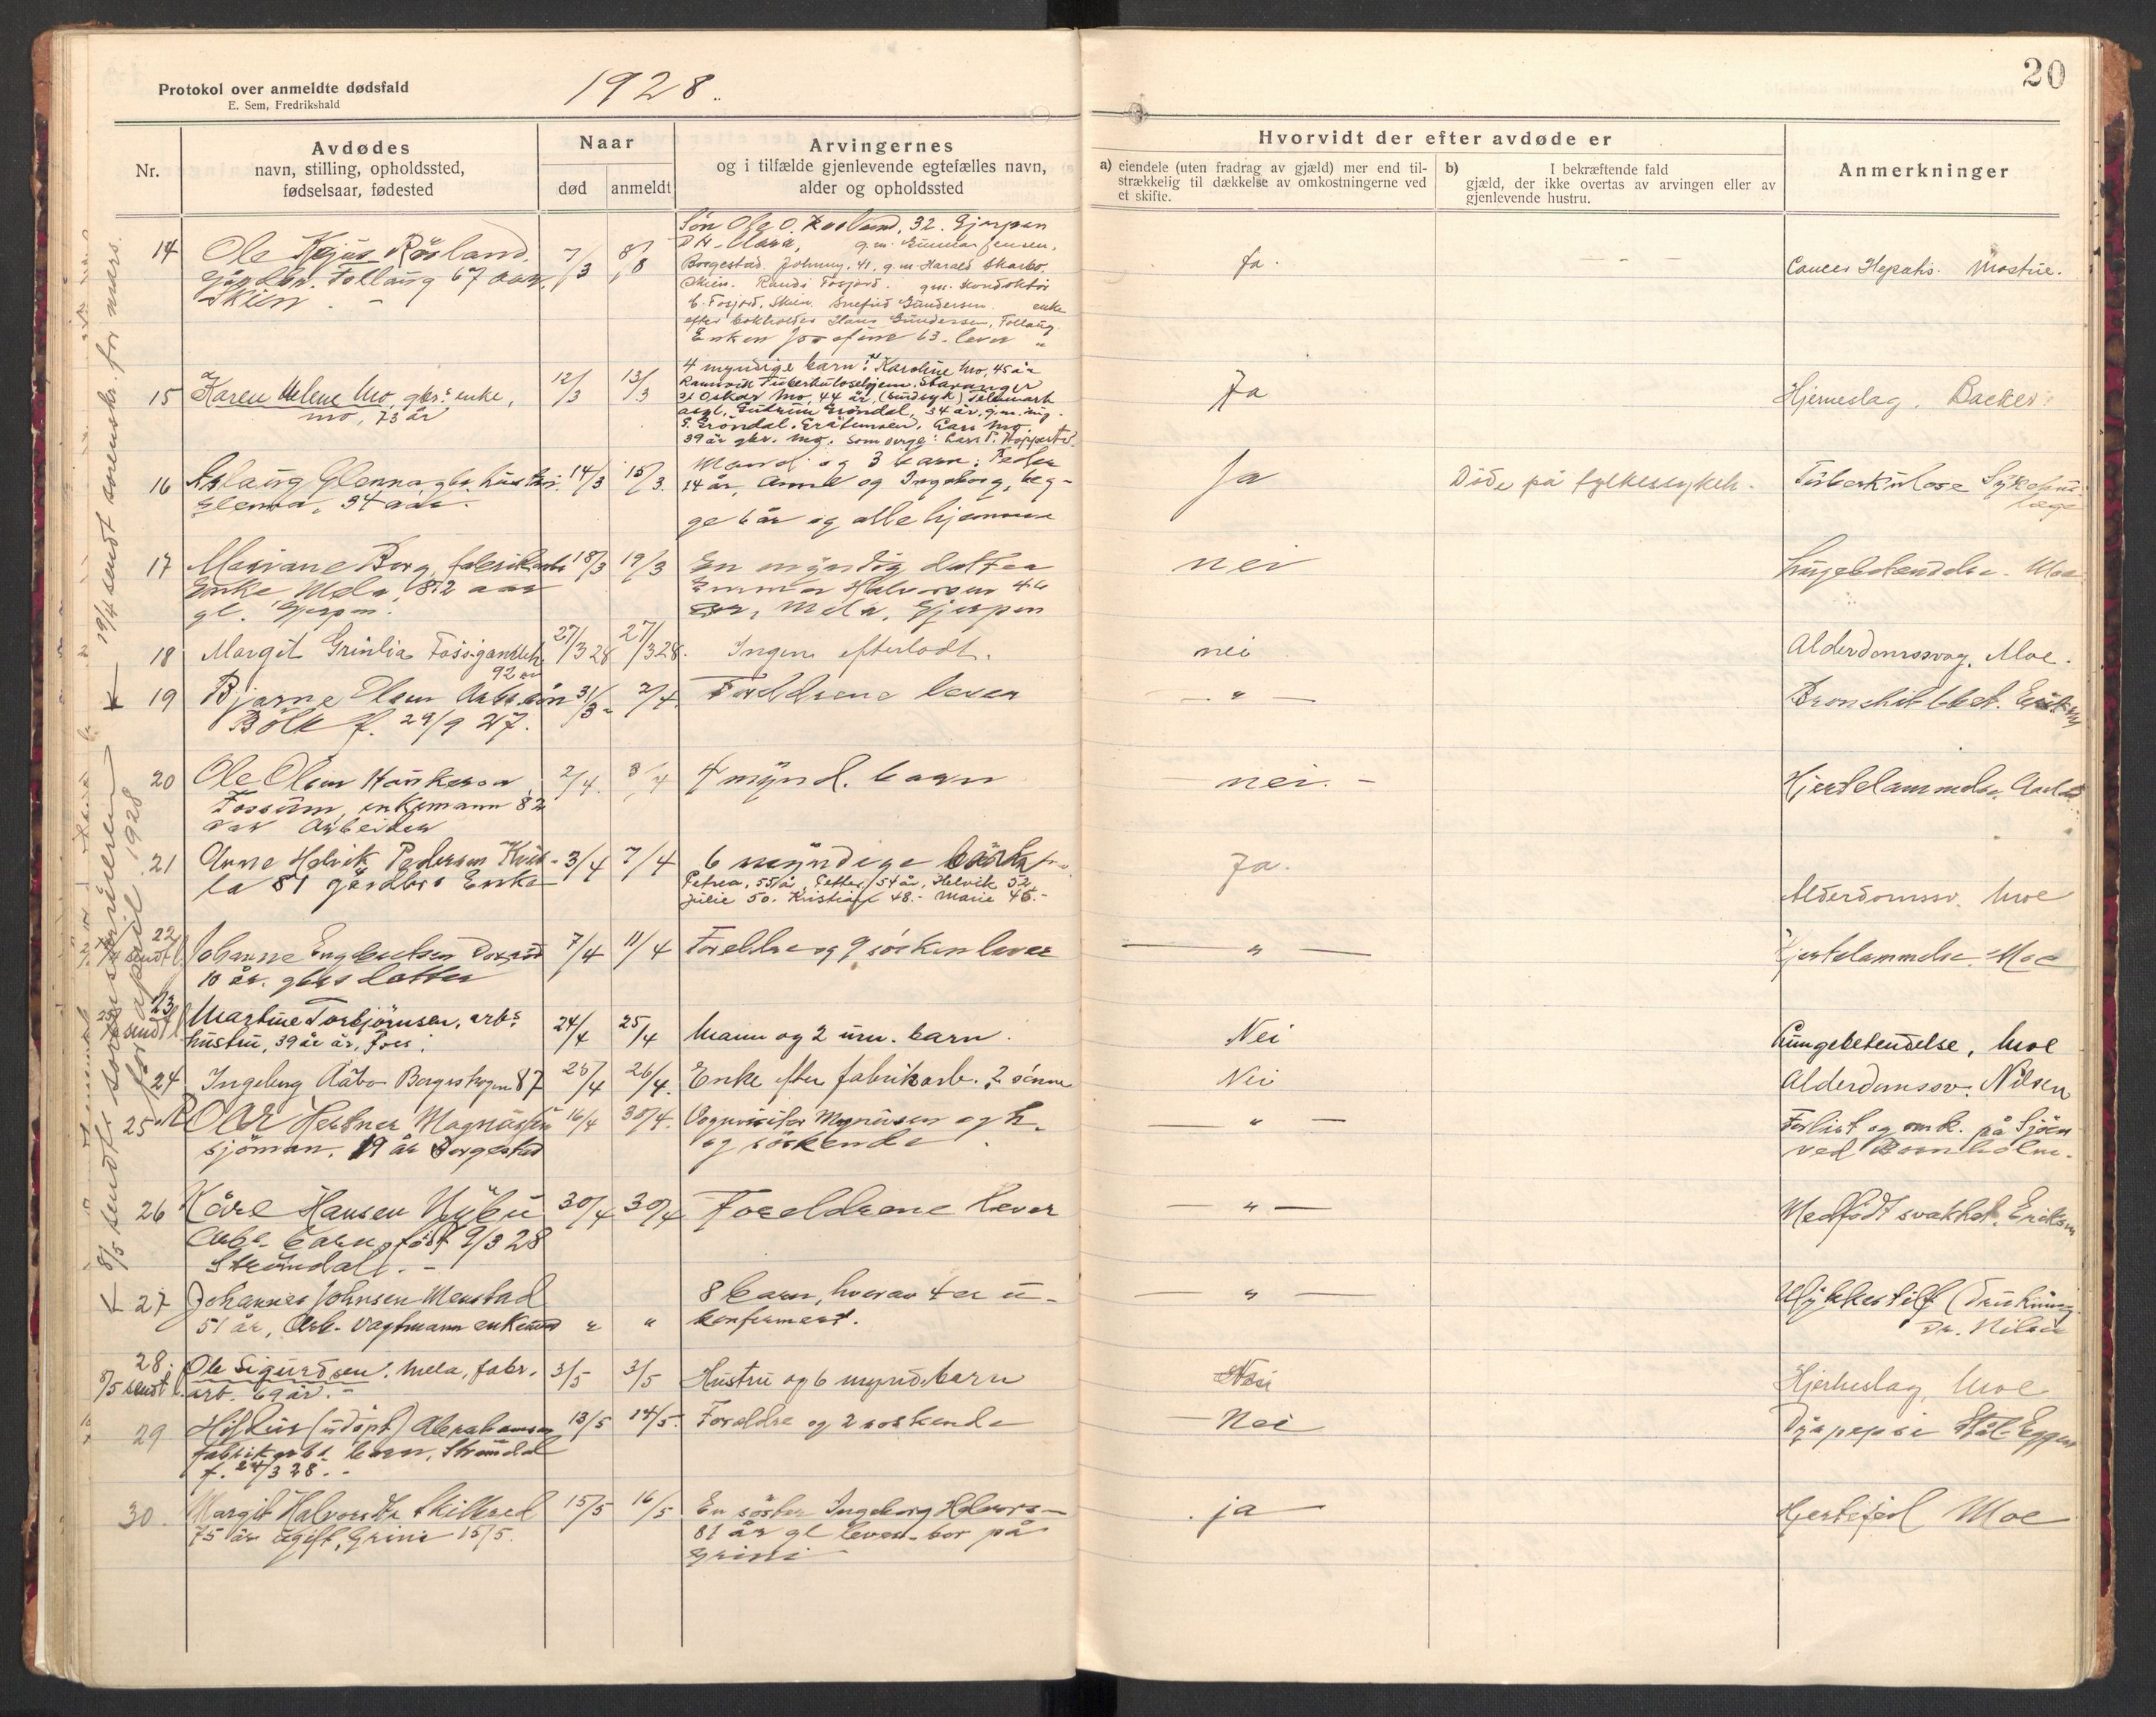 20
Protokol over anmeldte dødsfald
E. Sem, Fredrikshald
1928.
Nr.
Avdødes
navn, stilling, opholdssted,
fødselsaar, fødested
Naar
død
anmeldt
Arvingernes
og i tilfælde gjenlevende egtefælles navn,
alder og opholdssted
Hvorvidt der efter avdøde er
a) eiendele (uten fradrag av gjæld) mer end til-
strækkelig til dækkelse av omkostningerne ved
et skifte.
b) I bekræftende fald
gjæld, der ikke overtas av arvingen eller av
gjenlevende hustru.
Anmerkninger
14 Ole Røsland. 7/3 8/8
Follaug 67 aar,
Skien
Søn Ole O. Røsland, 32. Gjerpen
Clara, g.m. Gunnar Jensen,
Borgestad. Johnny, 41, g.m. Harald Skarbo.
Skien. Randi Fosjord. g.m. Konduktør
Fosjord, Skien. Gundersen. enke
efter Hans Gundersen, Follaug
Enken Josefine 63. lever
Ja.
Cancer Hepatis. Mostue.
15 Karen Helene Mo, gbr.s enke, 12/3 13/3
Mo, 73 år
4 myndige barn: Karoline Mo, 45 år
Tuberkulosehjem. Stavanger
Oskar Mo, 44 år, (sindsyk) Telemark
asyl. Gudrun Grøndal, 34 år, g.m. ing.
G. Grøndal. Gråtenmoen. Lars Mo,
39 år gbr. Mo. Som verge: Lars P. Hoppestad.
Ja
Hjerneslag. Backer
16 Aslaug Glenna gbr. hustru. 14/3 15/3.
Glenna, 34 aar.
Mand og 3 barn: Peder
14 år, Anne og Ingeborg, beg-
ge 6 år og alle hjemme
Ja
Døde på fylkessykeh.
Tuberkulose
læge
17 Mariane Borg, fabrikarb. 18/3 19/3
Enke Mela, 82 aar
gl. Gjerpen.
En myndig datter
Emma Halvorsen 46
aar, Mela, Gjerpen
nei
Lungebetændelse. Moe
18 Margit Grinlia Fossgamleh. 27/3 28 27/3 28.
92 aar
Ingen efterladt.
nei
Alderdomssvag. Moe.
19 Bjarne Olsen Arb. søn 31/3 2/4.
Bøle f. 29/9 27.
Foreldrene lever
— " —
Bronchit
20 Ole Olsen Haukerøa 2/4. 3/4
Fossum, enkemann 82
aar Arbeider
4 mynd. barn
nei. -
Hjertelammelse.
21 Anne Helvik Pedersen Kvit- 3/4 7/4
la 81 gårdbrs Enke
6 myndige barn
Petrea, 55 år, Petter, 54 år, Helvik 52,
Julie 50. Kristian 48. - Marie 46. -
Ja.
Alderdomsv. Moe
22 Johanne Engbretsen 7/4 11/4
10 år. gbrs datter
Foreldre og 9 søsken lever
— " —
Hjertelammelse. Moe
23 Martine Torbjørnsen, arb.s 24/4 25/4
hustru, 39 år
Mann og 2 um. barn.
Nei
Lungebetendelse, Moe
24 Ingeborg Aabo Borgeskogen 87 25/4 26/4.
Enke efter fabrikarb. 2 sønner
Nei
Alderdomssv. Nilsen
25 Olaf Herbner Magnussen 16/4 30/4.
sjømann. 19 år Borgestad
Vognvisitør Magnussen og h.
og søskende.
" —
Forlist og omk. på Sjøen
ved Bornholm.
26 Kåre Hansen Nybu 30/4 30/4
Arb. barn, født 9/3 28
Strømdal. -
Foreldrene lever
— " —
Medfødt svakhet. Eriksen
27 Johannes Johnsen Menstad
51 år, Arb. Vagtmann enkemand " "
8 barn, hvorav 4 er u-
konfirmert.
— " —
Ulykkestilf. (Drukning.
Dr. Nilsen
28. Ole Sigurdsen. Mela, fabr. 3/5 3/5
arb. 69 år. -
Hustru og 6 mynd. barn
Nei
Hjerneslag, Moe
29 (udøpt) Abrahamsen 13/5 14/5.
fabrikarbs. barn, Strømdal
f. 24/3 28. -
Foreldre og 2 søskende
Nei
Dyspepsi Eggen
30. Margit Halvorsdtr. Skilbred 15/5 16/5
75 år ugift, Grini 15/5.
En søster Ingeborg Halvors-
81 år gl lever. bor på
Grini
ja
Hjertefeil Moe
19/4 sendt sorenskr. for mars.
8/5 sendt sorenskriveren
for april 1928
sendt
sendt
8/5 sendt